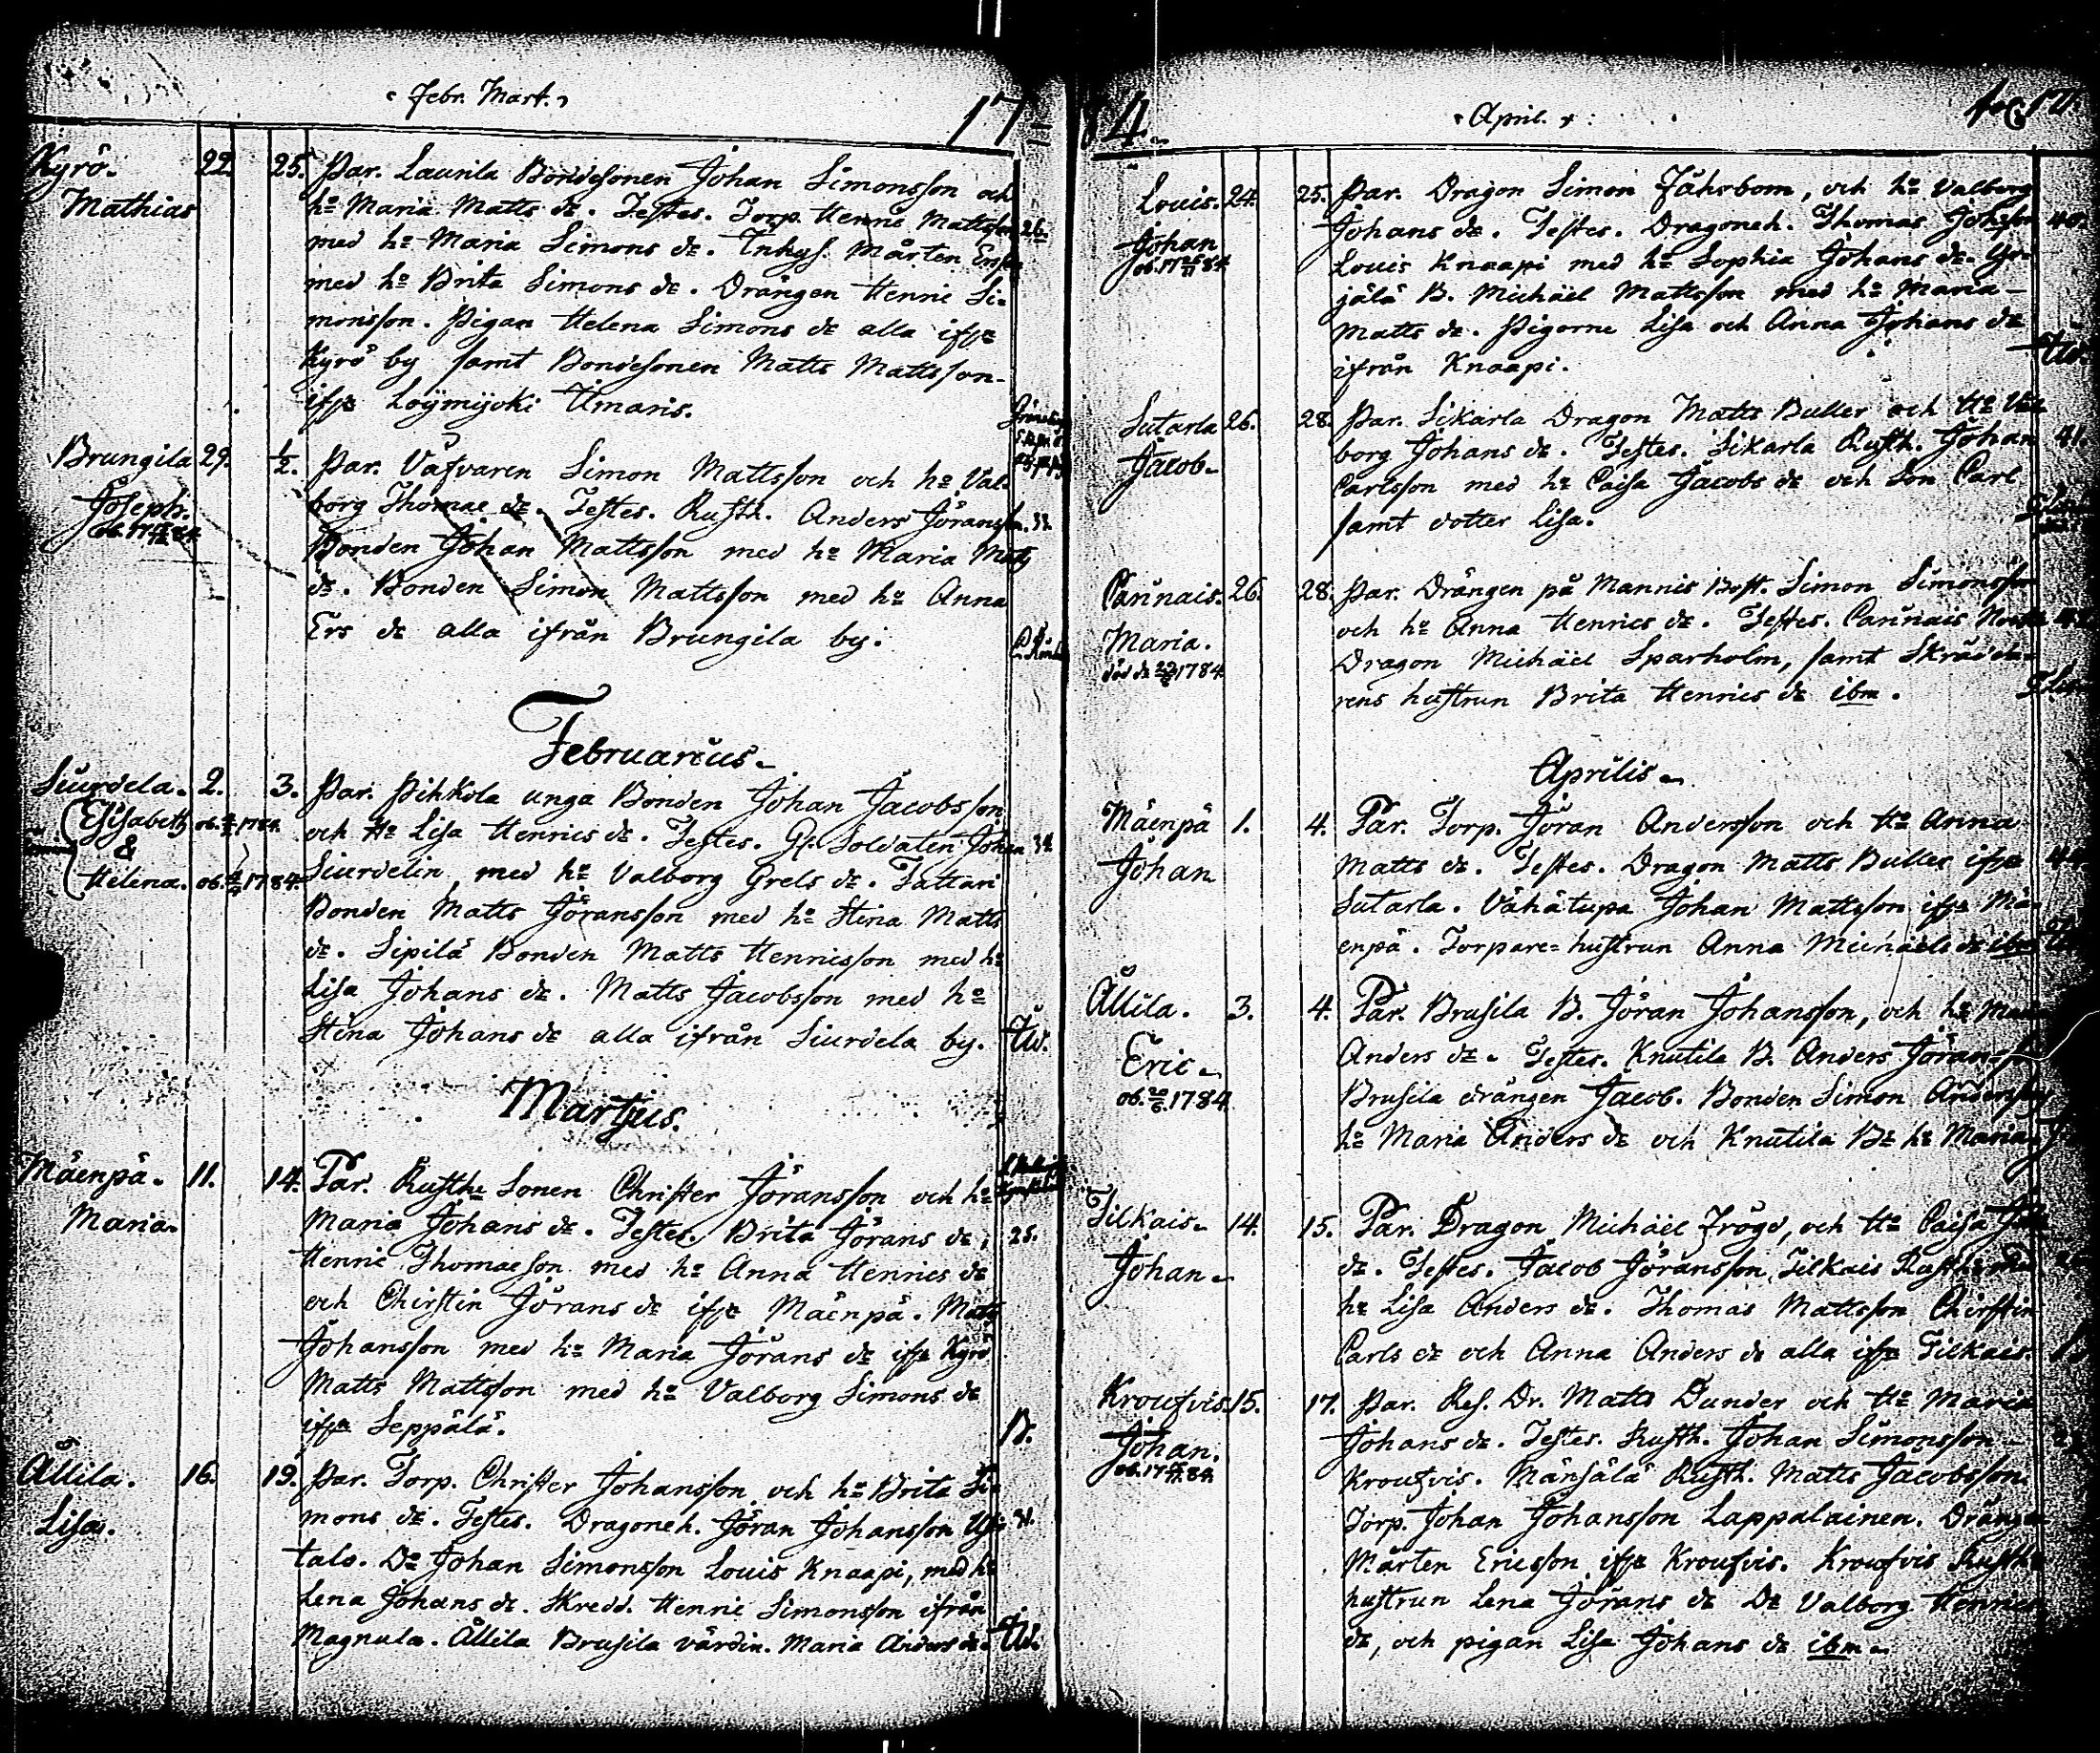 Febr. Mart.
17
Kyrö. 22. 25. Par. Launila Bondesonen Johan Simonsson och
Mathias hº Maria Matts dr. Testes. Torp. Henric Mattsson 26.
med hº Maria Simons dr. Inhys. Mårten Ersson
med hº Brita Simons dr. Drängen Henric Si=
monsson. Pigan Helena Simons dr alla ifr.
Kyrö by samt Bondesonen Matts Mattsson
ifr. Loÿmijoki Umaris.
Brungila 29. 1/2. Par. Väfvaren Simon Mattsson och hº Val-
Joseph. borg Thomae dr. Testes. Rusth. Anders Jöransson. 33.
Bonden Johan Mattsson med hº Maria Matts
dr. Bonden Simon Mattsson med hº Anna
Ers dr alla ifrån Brungila by.
Februarius.
Siurdela. 2. 3. Par. Pihkola unga Bonden Johan Jacobsson
Elisabeth ob. 1784. och Hº Lisa Henrics dr. Testes. Gl. Soldaten Johan 32
&
Helena. ob. 1784. Siurdelin, med hº Valborg Grels dr. Tattari
Bonden Matts Jöransson med hº Stina Matts
dr. Sipilä Bonden Matts Henricsson med hº
Lisa Johans dr. Matts Jacobsson med hº
Stina Johans dr alla ifrån Siurdela by. Uv.
Martius.
Mäenpä. 11. 14. Par. Rusth. Sonen Christer Jöransson och hº
Maria. Maria Johans dr. Testes. Brita Jörans dr, 25.
Henric Thomaeson med hº Anna Henrics dr
och Chirstin Jörans dr ifr. Mäenpä. Matts
Johansson med hº Maria Jörans dr ifr. Kyrö
Matts Mattsson med hº Valborg Simons dr
ifr. Seppälä. B.
Ållila. 16. 19. Par. Torp. Christer Johansson och hº Brita Si=
Lisa. mons dr. Testes. Dragoneh. Jöran Johansson
talo. Dº Johan Simonsson Louis Knaapi, med hº
Lena Johans dr. Skredd. Henric Simonsson ifrån
Magnula. Ållila Brusila värdin. Maria Anders dr. Uv.
84.
April.
Louis. 24. 25. Par. Dragon Simon Fährbom, och hº Valborg
Johan Johans dr. Testes. Dragoneh. Thomas Johsson 40.
Louis Knaapi med hº Sophia Johans dr. Yr=
jälä B. Michäel Mattsson med hº Maria
Matts dr. Pigorne Lisa och Anna Johans dr
ifrån Knaapi. Uv.
Sutarla 26. 28. Par. Sikarla Dragon Matts Buller och Hº Val
Jacob. borg Johans dr. Testes. Sikarla Rusth. Johan 41.
Carlsson med hº Caisa Jacobs dr och Son Carl
samt dotter Lisa.
Cannais. 26. 28. Par. Drängen på Mannis Bost. Simon Simonsson
Maria. och hº Anna Henrics dr. Testes. Cannais
död d. 1784. Dragon Michäel Sparholm, samt Skrädda=
rens hustrun Brita Henrics dr ibm.
Aprilis.
Mäenpä 1. 4. Par. Torp. Jöran Andersson och Hº Anna
Johan Matts dr. Testes. Dragon Matts Buller ifr.
Sutarla. Vähätupa Johan Mattsson ifr. Mä=
enpä. Torpare=hustrun Anna Michaels dr ibm
Ållila. 3. 4. Par. Brusila B. Jöran Johansson, och hº
Eric. Anders dr. Testes. Knutila B. Anders Jöransson
ob. 20/6. 1784. Brusila drängen Jacob. Bonden Simon Andersson
hº Maria Anders dr och Knutila Br hº Maria
Tilkais. 14. 15. Par. Dragon Michäel Frögd, och Hº Caisa
Johan. dr. Testes. Jacob Jöransson, Tilkais
hº Lisa Anders dr. Thomas Mattsson Chirstin
Carls dr och Anna Anders dr alla ifr. Tilkais.
Kroufvis. 15. 17. Par. Res. Dr. Matts Dunder och Hº Maria
Johan. Johans dr. Testes. Rusth. Johan Simonsson
Kroufvis. Mänsälä Rusth. Matts Jacobsson
Torp. Johan Johansson Lappalainen. Drängen
Mårten Ericsson ifr. Kroufvis. Kroufvis Rusth.
hustrun Lena Jörans dr Dº Valborg Henrics
dr, och pigan Lisa Johans dr ibm.